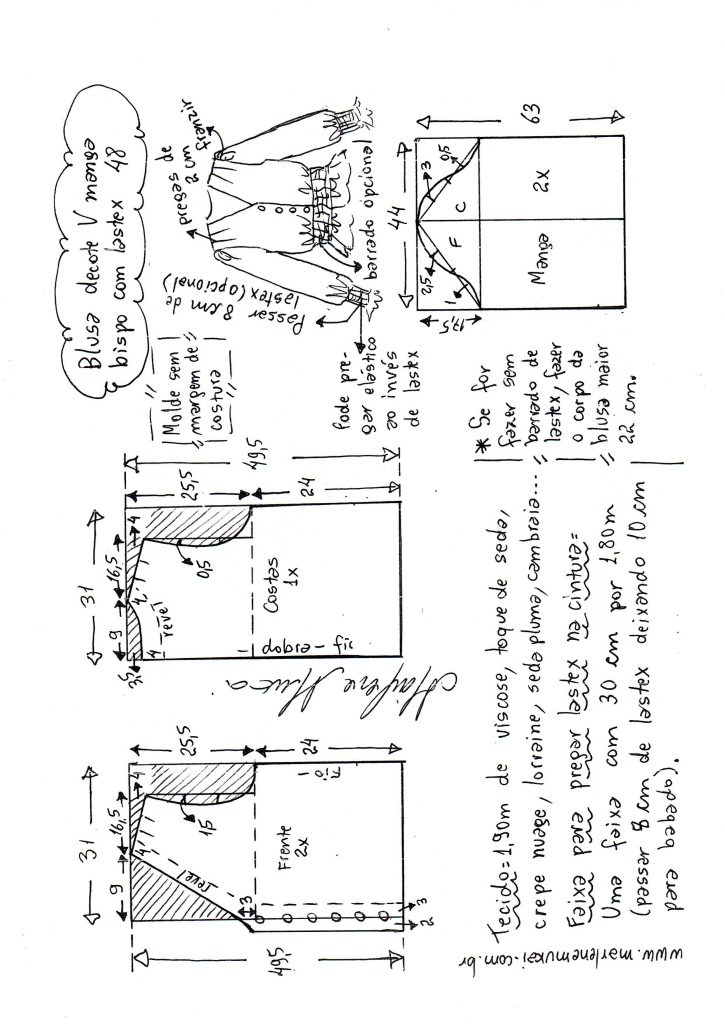 Blusa decote V manga
bispo com lastex 48
Molde sem
margem de
costura
pregas de
2 cm
franzir
Passar
8 cm de
lastex (opcional)
barrado opcional
Pode pre-
gar elástico
ao invés
de lastex
63
44
17,5
2,5
1
F
C
3
0,5
Manga
2x
31
9
16,5
3,5
4
4
4
revel
0,5
25,5
24
49,5
Costas
1x
dobra - fio
Marlene Mukai
31
9
16,5
4
4
revel
1,5
25,5
24
49,5
Frente
2x
Fio
3
3
2
Tecido = 1,90m de viscose, toque de seda,
crepe nuage, lorraine, seda pluma, cambraia...
Faixa para pregar lastex na cintura=
Uma faixa com 30 cm por 1,80m
(passar 8 cm de lastex deixando 10 cm
para babado).
* Se for
fazer sem
barrado de
lastex, fazer
o corpo da
blusa maior
22 cm.
www.marlenemukai.com.br